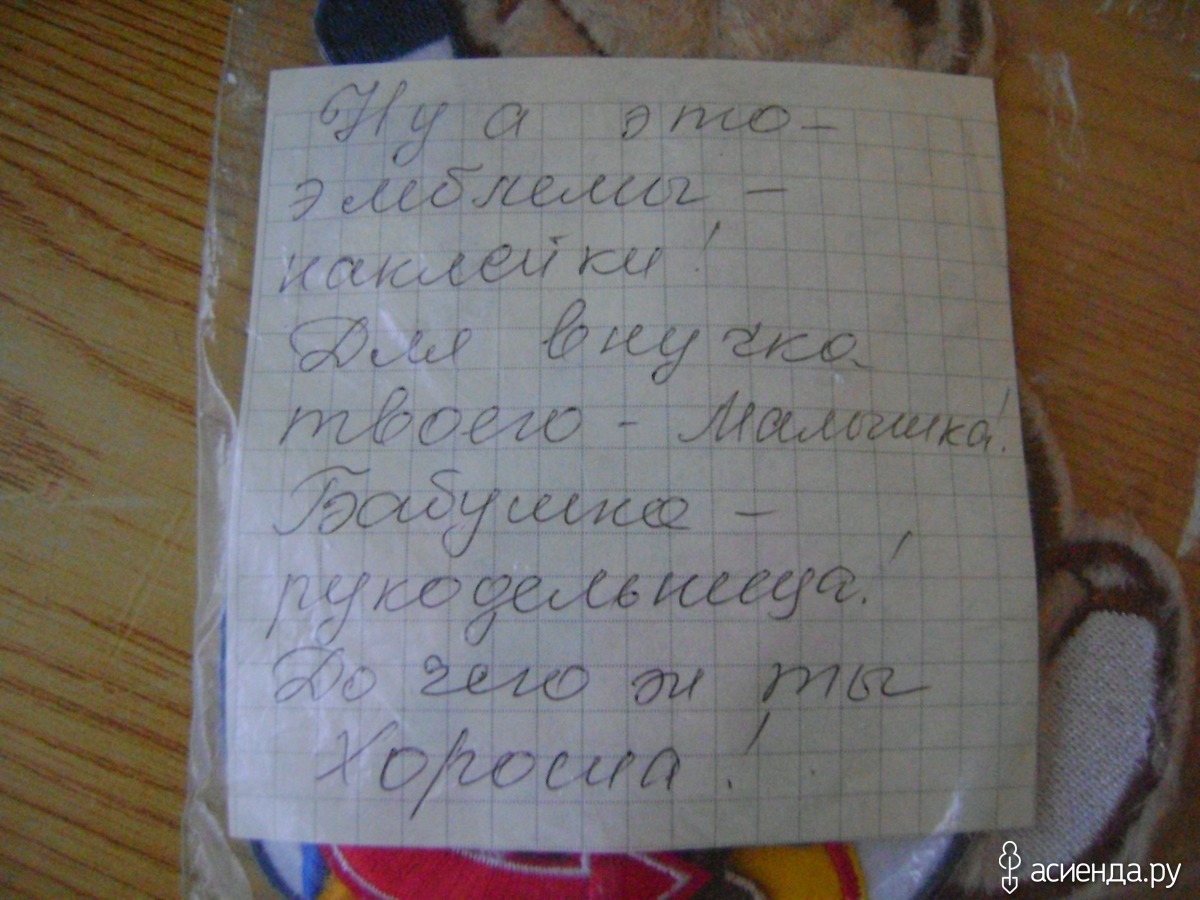 Ну а это –
эмблемы –
наклейки!
Для внучка
твоего - Малышка!
Бабушка –
рукодельница!
До чего ж ты
Хороша!
асиенда.ру